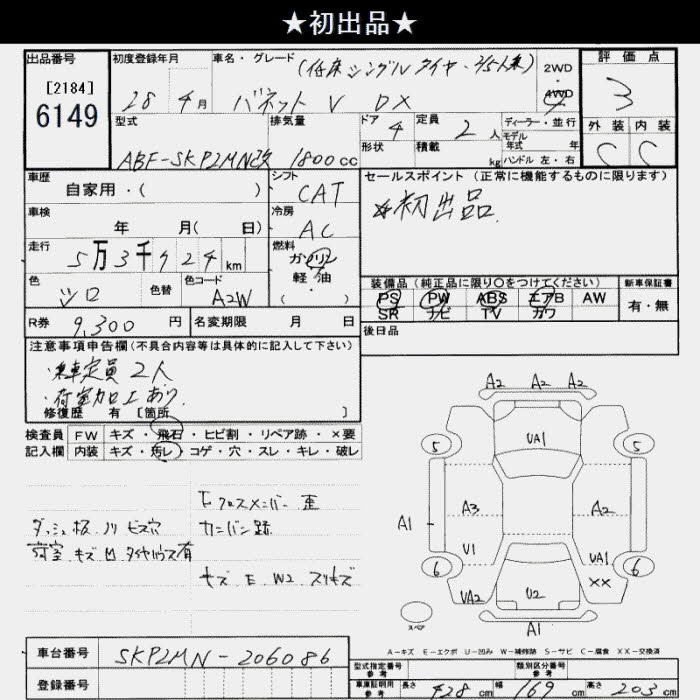 ★初出品★
出品番号
[2184]
6149
初度登録年月
28年4月
車名・グレード
(低床シングルタイヤ・2/5人乗)
バネット V DX
2WD
・
4WD
評価点
3
外装 内装
C C
型式
ABF-SKP2MN改
排気量
1800cc
ドア 4
形状
定員 2人
積載 kg
ディーラー・並行
モデル
年式 年
ハンドル 左・右
車歴
自家用・( )
シフト
CAT
車検
年 月( 日)
冷房
AC
走行
5万3千924km
燃料
ガソリン
軽・油
・( )
色
シロ
色替
色コード
A2W
R券 9,300円
名変期限 月 日
セールスポイント(正常に機能するものに限ります)
☆初出品
装備品(純正品に限り〇をつけてください)
PS PW ABS エアB AW
SR ナビ TV カワ
新車保証書
有・無
後日品
注意事項申告欄(不具合内容等は具体的に記入して下さい)
・乗車定員 2人
・荷室加工あり
修復歴 有 [箇所 ]
検査員
記入欄
FW キズ・飛石・ヒビ割・リペア跡・×要
内装 キズ・汚レ・コゲ・穴・スレ・キレ・破レ
Fクロスメンバー 歪
ダッシュ板 ノリ ビス穴
カンバン跡
荷室 キズ M タイヤハウス有
キズ E W2 スリキズ
A2 A2 A2
UA1
5 5
A3 A2
A1
V1 UA1
6 ×× 6
UA2 U2
A1
スペア
A-キズ E-エクボ U-凹み W-補修跡 S-サビ C-腐食 XX-交換済
車台番号
SKP2MN-206086
登録番号
型式指定番号
参考
類別区分番号
参考
車庫証明用
参考
長さ 428cm 幅 169cm 高さ 203cm